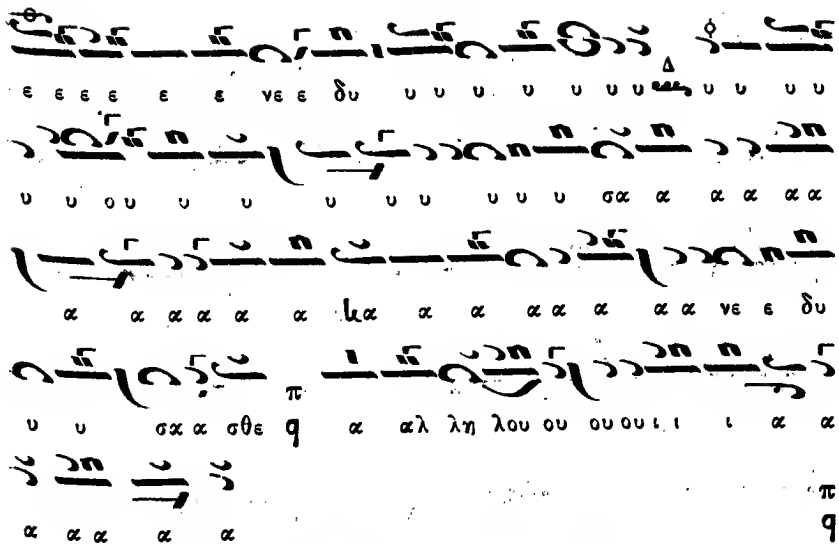 ε ε ε ε ε ε νε ε δυ υ υ υ υ υ υ υ υ υ υ υ
υ υ ου υ υ υ υ υ υ υ υ σα α α α α α
α α α α α α κα α α α α α α α νε ε δυ
υ υ σα α σθε π q α αλ λη λου ου ου ου ι ι ι α α
α α α α α π q